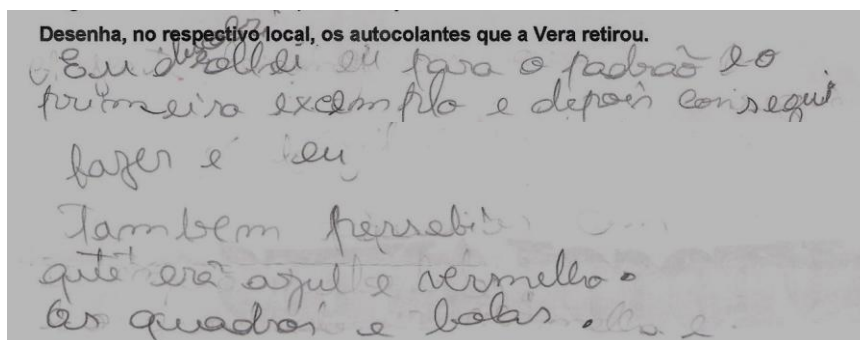 Desenha, no respectivo local, os autocolantes que a Vera retirou.
Eu olhei eu para o padraõ e o
primeiro excemplo e depois consegui
fazer e eu
Tambem persebi
que erã azul e vermelho.
Os quadros e bolas.